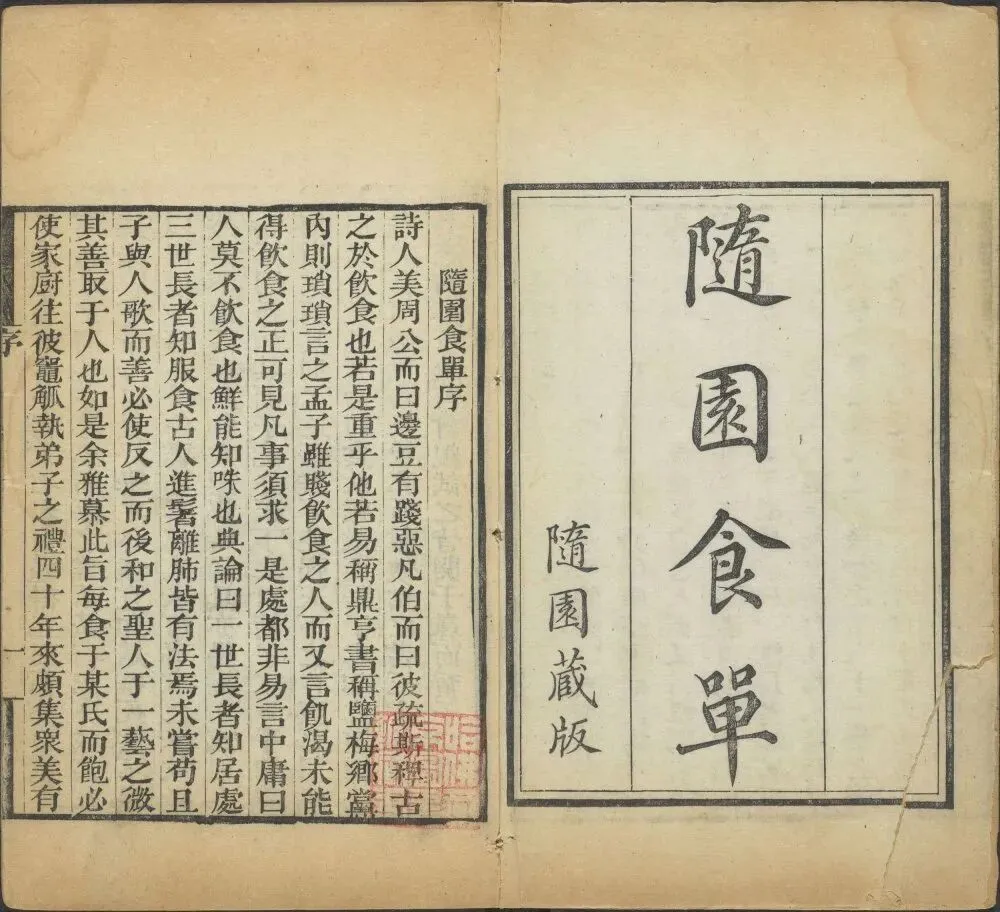 隨園食單
隨園蔵版
隨園食單序
詩人美周公而曰籩豆有踐惡凡伯而曰彼疏斯稗古
之於飲食也若是重乎他若易稱鼎亨書稱鹽梅鄉黨
內則瑣瑣言之孟子雖賤飲食之人而又言飢渴未能
得飲食之正可見凡事須求一是處都非易言中庸曰
人莫不飲食也鮮能知味也典論曰一世長者知居處
三世長者知服食古人進鬐離肺皆有法焉未嘗苟且
子與人歌而善必使反之而後和之聖人于一藝之微
其善取于人也如是余雅慕此旨每食于某氏而飽必
使家廚往彼竈觚執弟子之禮四十年來頗集衆美有
序
一